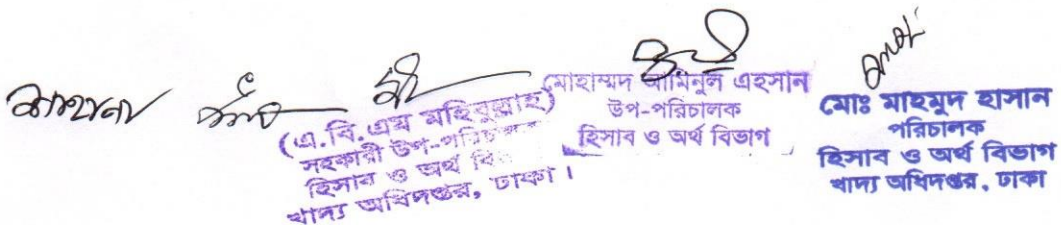 (এ.বি.এম মহিবুল্লাহ)
সহকারী উপ-পরিচালক
হিসাব ও অর্থ বিভাগ
খাদ্য অধিদপ্তর, ঢাকা।
মোহাম্মদ আমিনুল এহসান
উপ-পরিচালক
হিসাব ও অর্থ বিভাগ
মোঃ মাহমুদ হাসান
পরিচালক
হিসাব ও অর্থ বিভাগ
খাদ্য অধিদপ্তর, ঢাকা